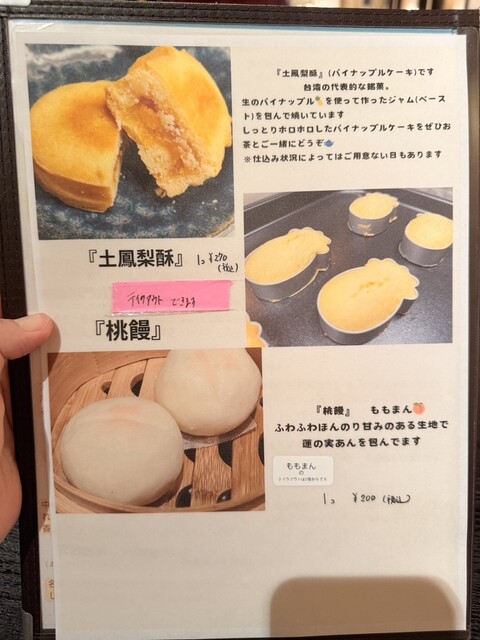 『土鳳梨酥』(パイナップルケーキ)です
台湾の代表的な銘菓。
生のパイナップル🍍を使って作ったジャム(ペース
ト)を包んで焼いています
しっとりホロホロしたパイナップルケーキをぜひお
茶とご一緒にどうぞ🫖
※仕込み状況によってはご用意ない日もあります
『土鳳梨酥』 1つ ¥270
(税込)
テイクアウト できます
『桃饅』
『桃饅』 ももまん🍑
ふわふわほんのり甘みのある生地で
蓮の実あんを包んでます
ももまん
の
テイクアウトは2個からです
1つ ¥200 (税込)